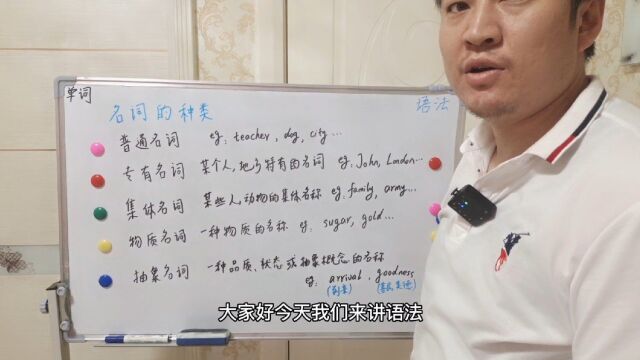 单词
语法
名词的种类
普通名词 eg: teacher, dog, city...
专有名词 某个人,地方特有的名词 eg: John, London...
集体名词 某些人,动物的集体名称 eg: family, army...
物质名词 一种物质的名称 eg: sugar, gold...
抽象名词 一种品质、状态或抽象概念的名称
eg: arrival, goodness
(到来)
大家好今天我们来讲语法